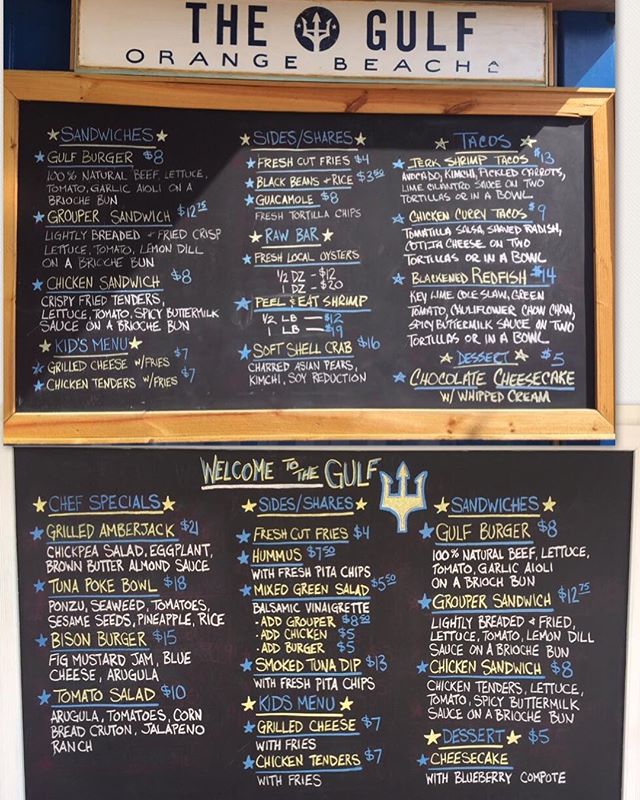 THE GULF
ORANGE BEACH
SANDWICHES
GULF BURGER $8
100% NATURAL BEEF, LETTUCE,
TOMATO, GARLIC AIOLI ON A
BRIOCHE BUN
GROUPER SANDWICH $12.75
LIGHTLY BREADED + FRIED CRISP
LETTUCE, TOMATO, LEMON DILL
ON A BRIOCHE BUN
CHICKEN SANDWICH $8
CRISPY FRIED TENDERS,
LETTUCE, TOMATO, SPICY BUTTERMILK
SAUCE ON A BRIOCHE BUN
KID'S MENU
GRILLED CHEESE W/FRIES $7
CHICKEN TENDERS W/FRIES $7
SIDES/SHARES
FRESH CUT FRIES $4
BLACK BEANS + RICE $3.50
GUACAMOLE $8
FRESH TORTILLA CHIPS
RAW BAR
FRESH LOCAL OYSTERS
1/2 DZ - $12
1 DZ - $20
PEEL & EAT SHRIMP
1/2 LB — $12
1 LB — $19
SOFT SHELL CRAB $16
CHARRED ASIAN PEARS,
KIMCHI, SOY REDUCTION
TACOS
JERK SHRIMP TACOS $13
AVOCADO, KIMCHI, PICKLED CARROTS,
LIME CILANTRO SAUCE ON TWO
TORTILLAS OR IN A BOWL
CHICKEN CURRY TACOS $9
TOMATILLA SALSA, SHAVED RADISH,
COTIJA CHEESE ON TWO
TORTILLAS OR IN A BOWL
BLACKENED REDFISH $14
KEY LIME COLE SLAW, GREEN
TOMATO, CAULIFLOWER CHOW CHOW,
SPICY BUTTERMILK SAUCE ON TWO
TORTILLAS OR IN A BOWL
DESSERT $5
CHOCOLATE CHEESECAKE
W/ WHIPPED CREAM
WELCOME TO THE GULF
CHEF SPECIALS
GRILLED AMBERJACK $21
CHICKPEA SALAD, EGGPLANT,
BROWN BUTTER ALMOND SAUCE
TUNA POKE BOWL $18
PONZU, SEAWEED, TOMATOES,
SESAME SEEDS, PINEAPPLE, RICE
BISON BURGER $15
FIG MUSTARD JAM, BLUE
CHEESE, ARUGULA
TOMATO SALAD $10
ARUGULA, TOMATOES, CORN
BREAD CRUTON, JALAPENO
RANCH
SIDES/SHARES
FRESH CUT FRIES $4
HUMMUS $7.50
WITH FRESH PITA CHIPS
MIXED GREEN SALAD $5.50
BALSAMIC VINAIGRETTE
- ADD GROUPER $8.50
- ADD CHICKEN $5
- ADD BURGER $5
SMOKED TUNA DIP $13
WITH FRESH PITA CHIPS
KIDS MENU
GRILLED CHEESE $7
WITH FRIES
CHICKEN TENDERS $7
WITH FRIES
SANDWICHES
GULF BURGER $8
100% NATURAL BEEF, LETTUCE,
TOMATO, GARLIC AIOLI
ON A BRIOCH BUN
GROUPER SANDWICH $12.75
LIGHTLY BREADED + FRIED,
LETTUCE, TOMATO, LEMON DILL
SAUCE ON A BRIOCHE BUN
CHICKEN SANDWICH $8
CHICKEN TENDERS, LETTUCE,
TOMATO, SPICY BUTTERMILK
SAUCE ON A BRIOCHE BUN
DESSERT $5
CHEESECAKE
WITH BLUEBERRY COMPOTE